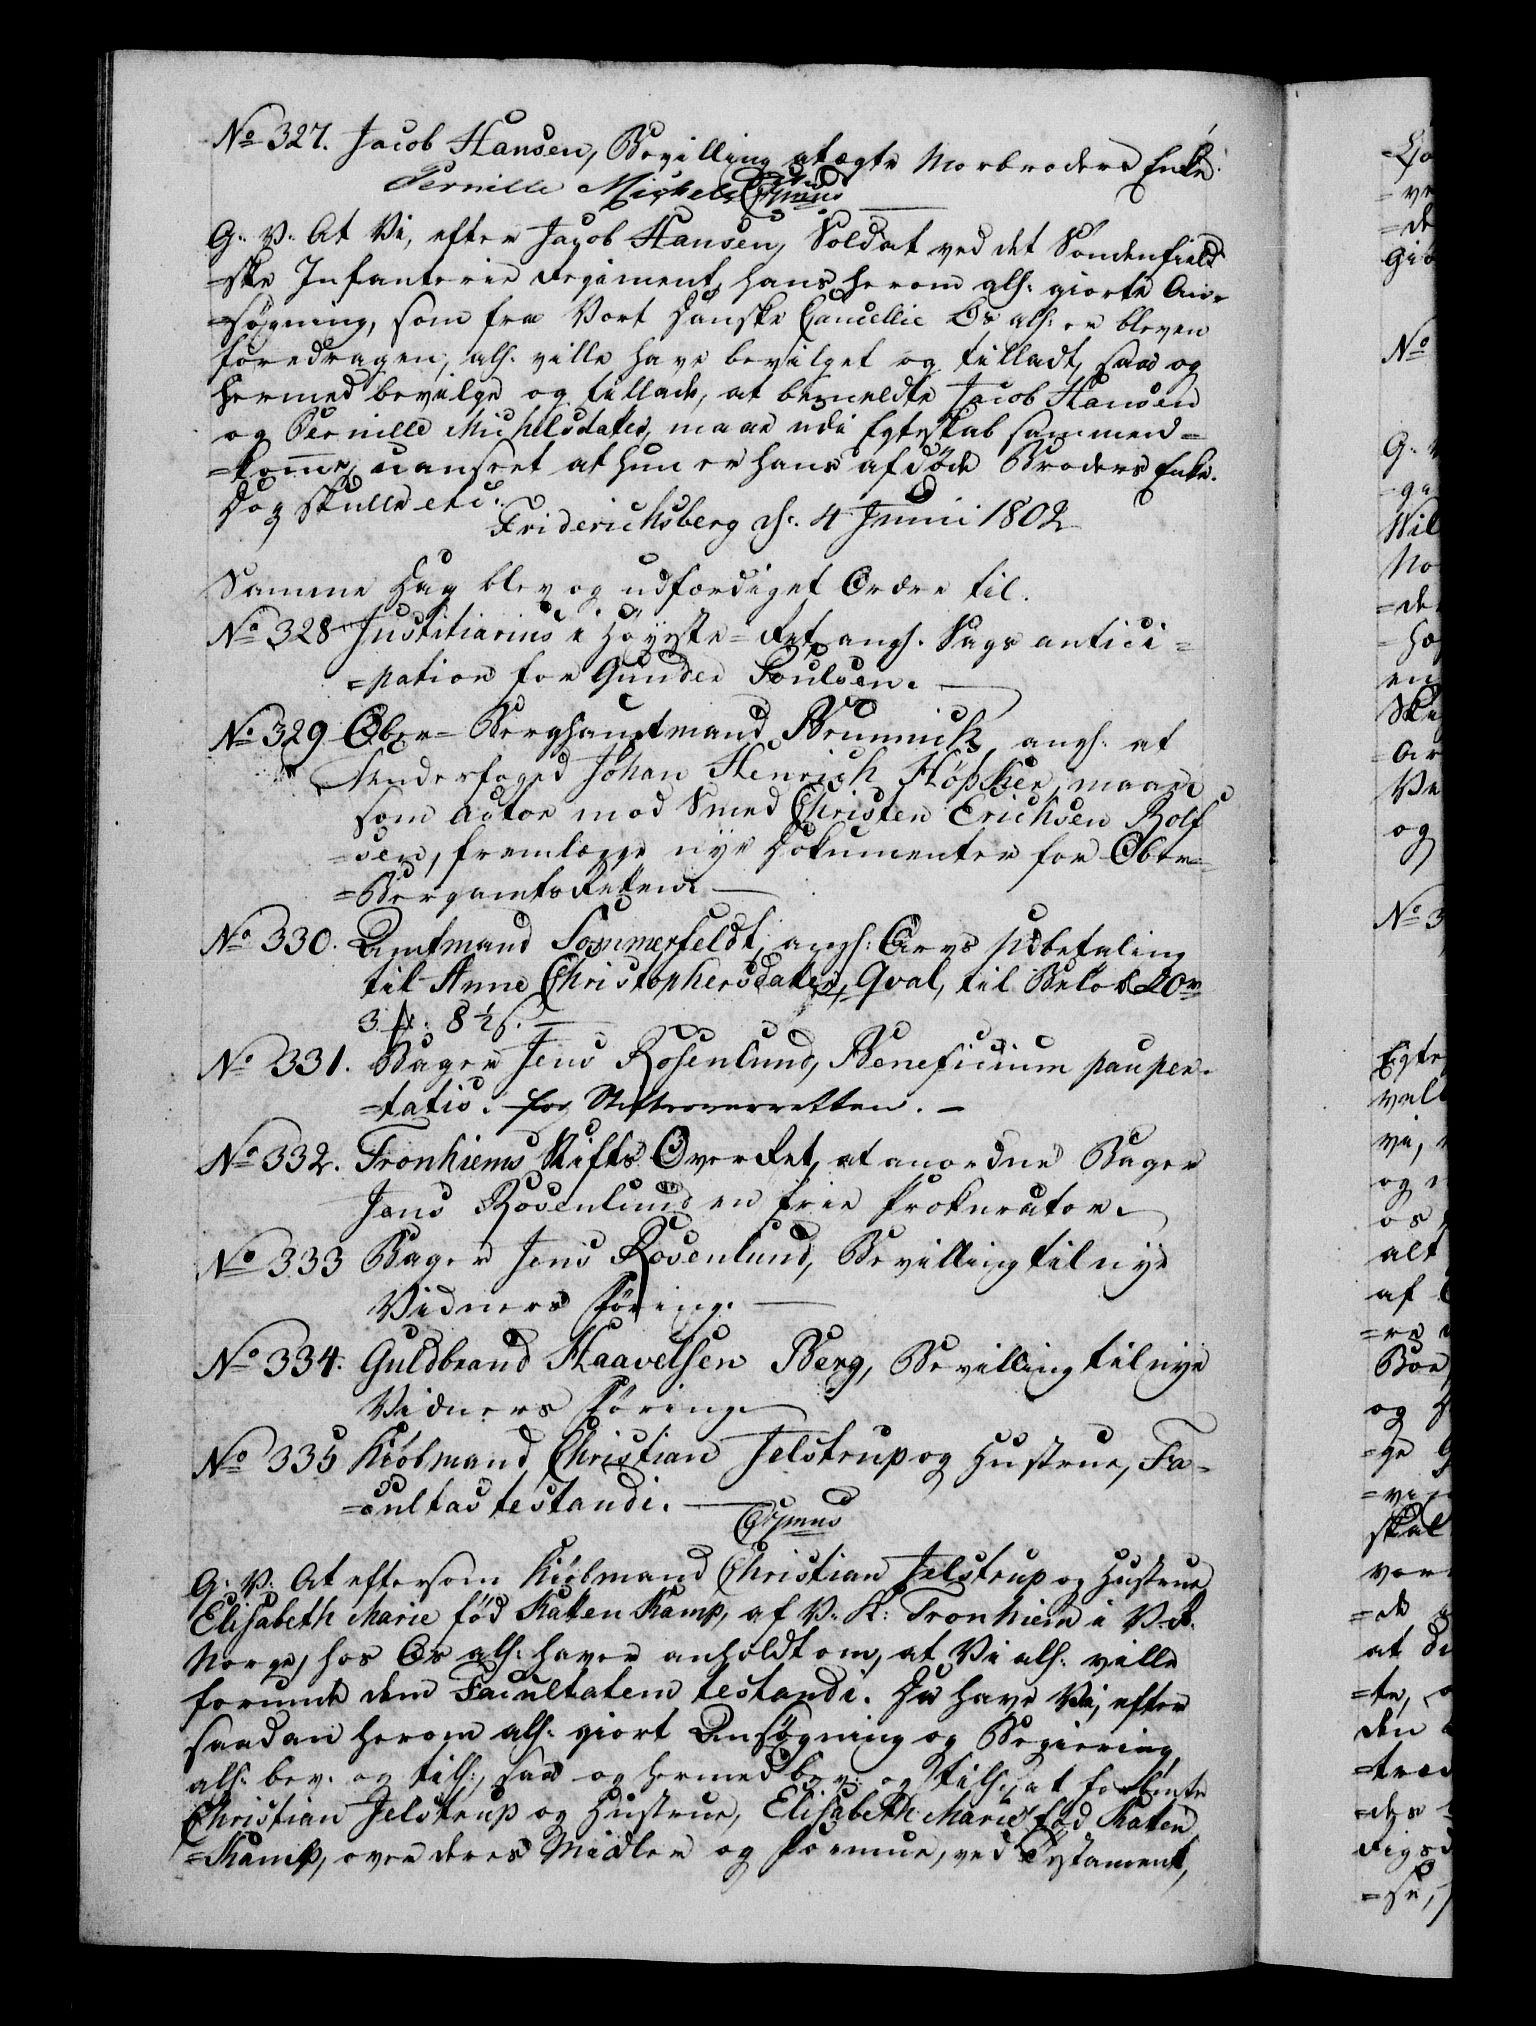 No 327. Jacob Hansen, Bevilling at ægte Morbroders Enke
Pernille Michelsdatter
Christianus
G. V. At Vi, efter Jacob Hansen, Soldat ved det Søndenfield
=ske Infanterie Regiment, hans herom alh: giorte An=
=søgning, som fra Vort Danske Cancellie Os alh: er bleven
foredragen, alh: ville have bevilget og tilladt, saa og
hermed bevilge og tillade, at bemeldte Jacob Hansen
og Pernille Michelsdatter, maae udi Egteskab sammen=
=komme, uanseet at hun er hans afdøde Broders Enke.
Dog skulle etc.
Friderichsberg d: 4 Junii 1802
Samme Dag blev og udfærdiget Ordre til.
No 328 Justitiarius i Høyeste=Ret, angl. Sags antici=
=pation for Gunder Poulsen.
No 329 Ober=Berghauptmand Brünnich, angl. at
Lænderfoged Johan Henrich Höpker, maae
som Actor mod Smed Christen Erichsen Rolf
=sen, fremlægge nye Dokumenter for Ober=
=Bergamts Retten.
No 330. Amtmand Sommerfeldt, angl: Arvs Udbetaling
til Anne Christophersdatter Qval, til Beløb 20 rd
3 # 8½ s.
No 331. Bager Jens Rosenlund, Beneficium pauper=
=tatis. for Stiftsoverretten.
No 332. Tronhiems Stifts Over Ret, at anordne Bager
Jens Rosenlund en frie Prokurator.
No 333 Bager Jens Rosenlund, Bevilling til nye
Vidners Føring.
No 334. Guldbrand Haavelsen Berg, Bevilling til nye
Vidners Føring
No 335 Kiøbmand Christian Jelstrup og Hustrue, Fa=
=cultas testandi.
Christianus
G. V. At eftersom Kiøbmand Christian Jelstrup og Hustrue
Elisabeth Marie fød Katten Kamp, af V. K: Tronhiem i V. R.
Norge, hos Os alh: haver anholdt om, at Vi alh. ville
forunde dem Facultatem testandi. Da have Vi, efter
saadan herom alh: giort Ansøgning og Begiering,
alh: bev: og till:, saa og hermed bev: og till: at forbemte
Christian Jelstrup og Hustrue, Elisabeth Marie fød Katen
=Kamp, over deres Midler og Formue, ved Testament,